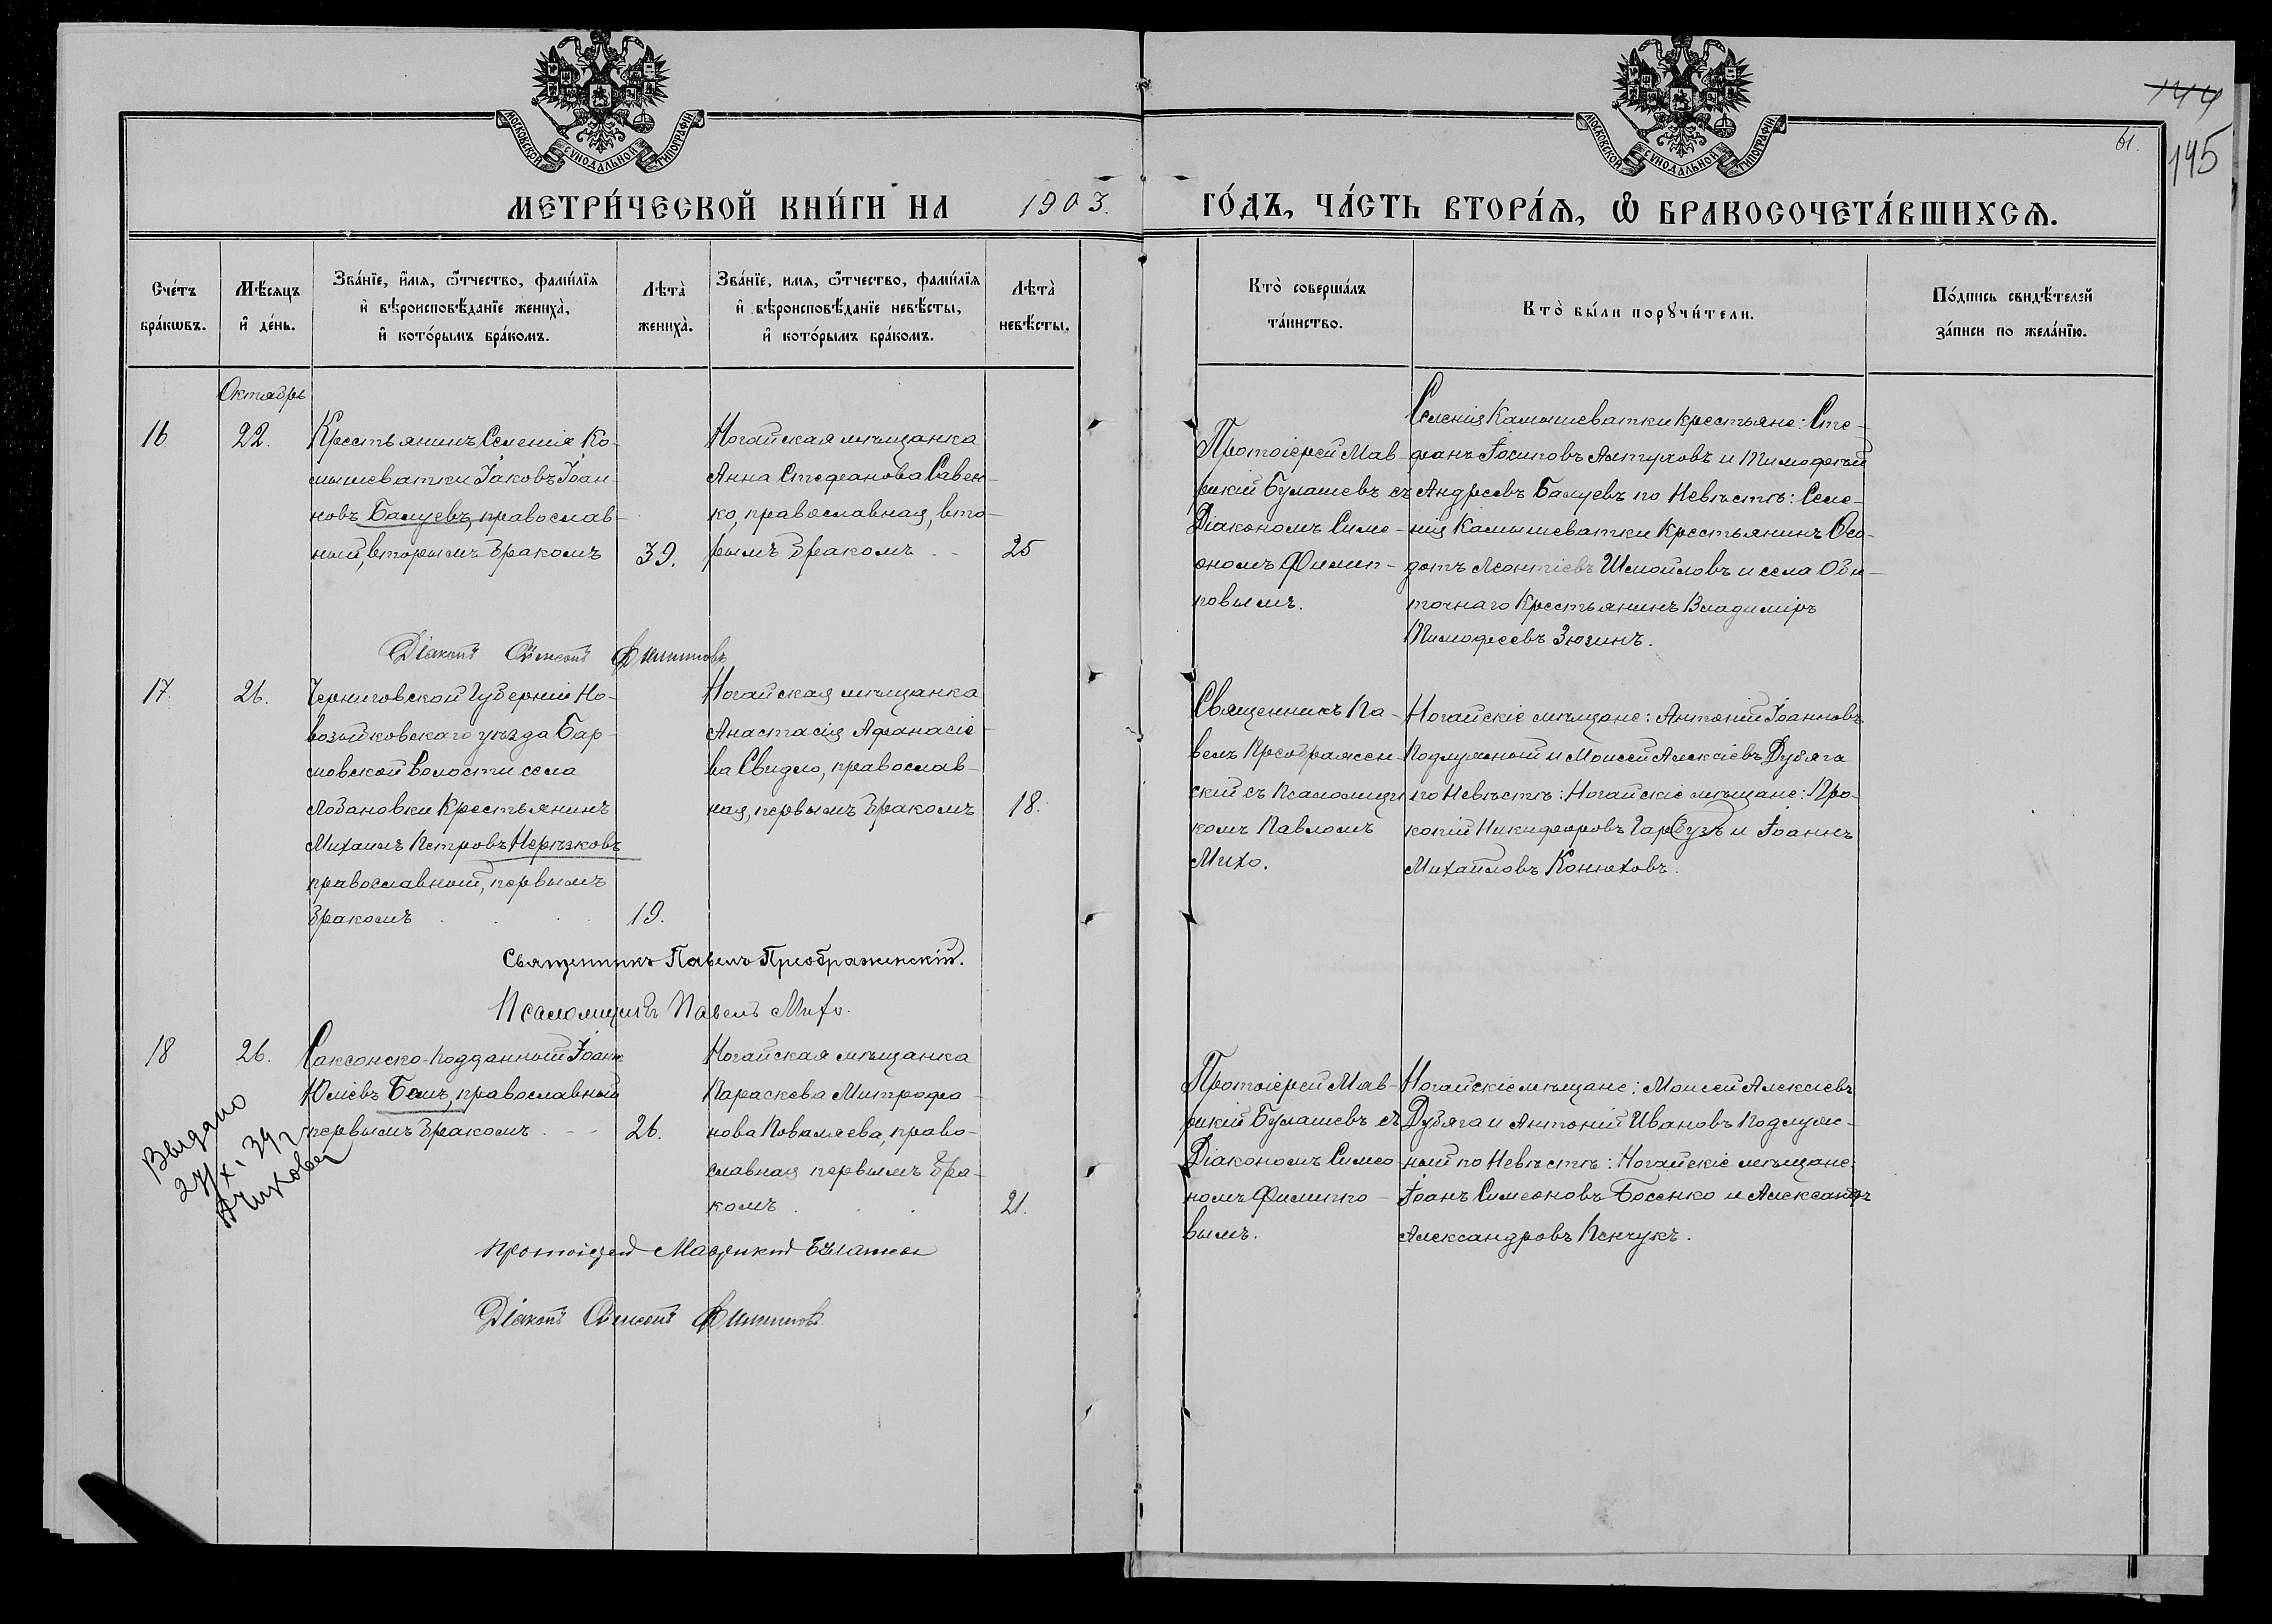 МОСКОВСКОЙ СѴНОДАЛЬНОЙ ТИПОГРАФІИ
МОСКОВСКОЙ СѴНОДАЛЬНОЙ ТИПОГРАФІИ
144
145
61.
МЕТРИ́ЧЕСКОЙ КНИ́ГИ НА 1903. ГО́ДЪ, ЧА́СТЬ ВТОРА́Ѧ, Ѽ БРАКОСОЧЕТА́ВШИХСѦ.
Сче́тъ бра́кѡвъ.
Мѣ́сяцъ и҆ де́нь.
Зва́нїе, и҆́мя, ѻ҆́тчество, фами́лїя
и҆ вѣроисповѣ́данїе жениха̀,
и҆ кото́рымъ бра́комъ.
Лѣта̀ жениха̀.
Зва́нїе, имя, ѻ҆́тчество, фами́лїя
и҆ вѣроисповѣ́данїе невѣ́сты,
и҆ кото́рымъ бра́комъ.
Лѣта̀ невѣ́сты.
Кто̀ соверша́лъ
та́инство.
Кто̀ бы́ли порꙋчи́тели.
По́дпись свидѣ́телей
за́писи по жела́нїю.
Октябрь
16
22.
Крестьянинъ Селенія Ка-
мышеватки Іаковъ Іоан-
новъ Балуевъ, православ-
ный, вторымъ бракомъ
39.
Ногайская мѣщанка
Анна Стефанова Савен-
ко, православная, вто-
рымъ бракомъ
25
Протоіерей Мав-
рикій Булашевъ съ
Діакономъ Симе-
ономъ Филип-
повымъ.
Селенія Камышеватки крестьяне: Сте-
фанъ Іосиповъ Алтуховъ и Тимофей
Андреевъ Балуевъ по Невѣстѣ: Селе-
нія Камышеватки Крестьянинъ Ѳео-
дотъ Леонтіевъ Шмойловъ и села Оби-
точнаго Крестьянинъ Владиміръ
Тимофеевъ Зюзинъ.
Діаконъ Симеонъ Филипповъ
17.
26.
Черниговской Губерніи Но-
возыбковскаго уѣзда Бар-
мовской Волости села
Лобановки Крестьянинъ
Михаилъ Петровъ Нерѣзковъ
православный, первымъ
бракомъ
19.
Ногайская мѣщанка
Анастасія Афанасіе-
ва Свидло, православ-
ная, первымъ бракомъ
18.
Священникъ Па-
велъ Преображен-
скій съ Псаломщи-
комъ Павломъ
Михо.
Ногайскіе мѣщане: Антоній Іоанновъ
Подлужный и Моисей Алексіевъ Дубяга
по Невѣстѣ: Ногайскіе мѣщане: Про-
копій Никифоровъ Гарбузъ и Іоаннъ
Михайловъ Конюховъ.
Священникъ Павелъ Преображенскій.
Псаломщикъ Павелъ Михо.
18
26.
Саксонско-подданный Іоаннъ
Юліевъ Бемъ, православный
первымъ бракомъ
26.
Ногайская мѣщанка
Параскева Митрофа-
нова Поваляева, право-
славная первымъ бра-
комъ
21.
Протоіерей Мав-
рикій Булашевъ съ
Діакономъ Симео-
номъ Филиппо-
вымъ.
Ногайскіе мѣщане: Моисей Алексіевъ
Дубяга и Антоній Ивановъ Подлуж-
ный по Невѣстѣ: Ногайскіе мѣщане:
Іоанъ Симеоновъ Босенко и Александръ
Александровъ Пенчукъ.
Выдано
27/X. 39 г.
Протоіерей Маврикій Булашевъ
Діаконъ Симеонъ Филипповъ.